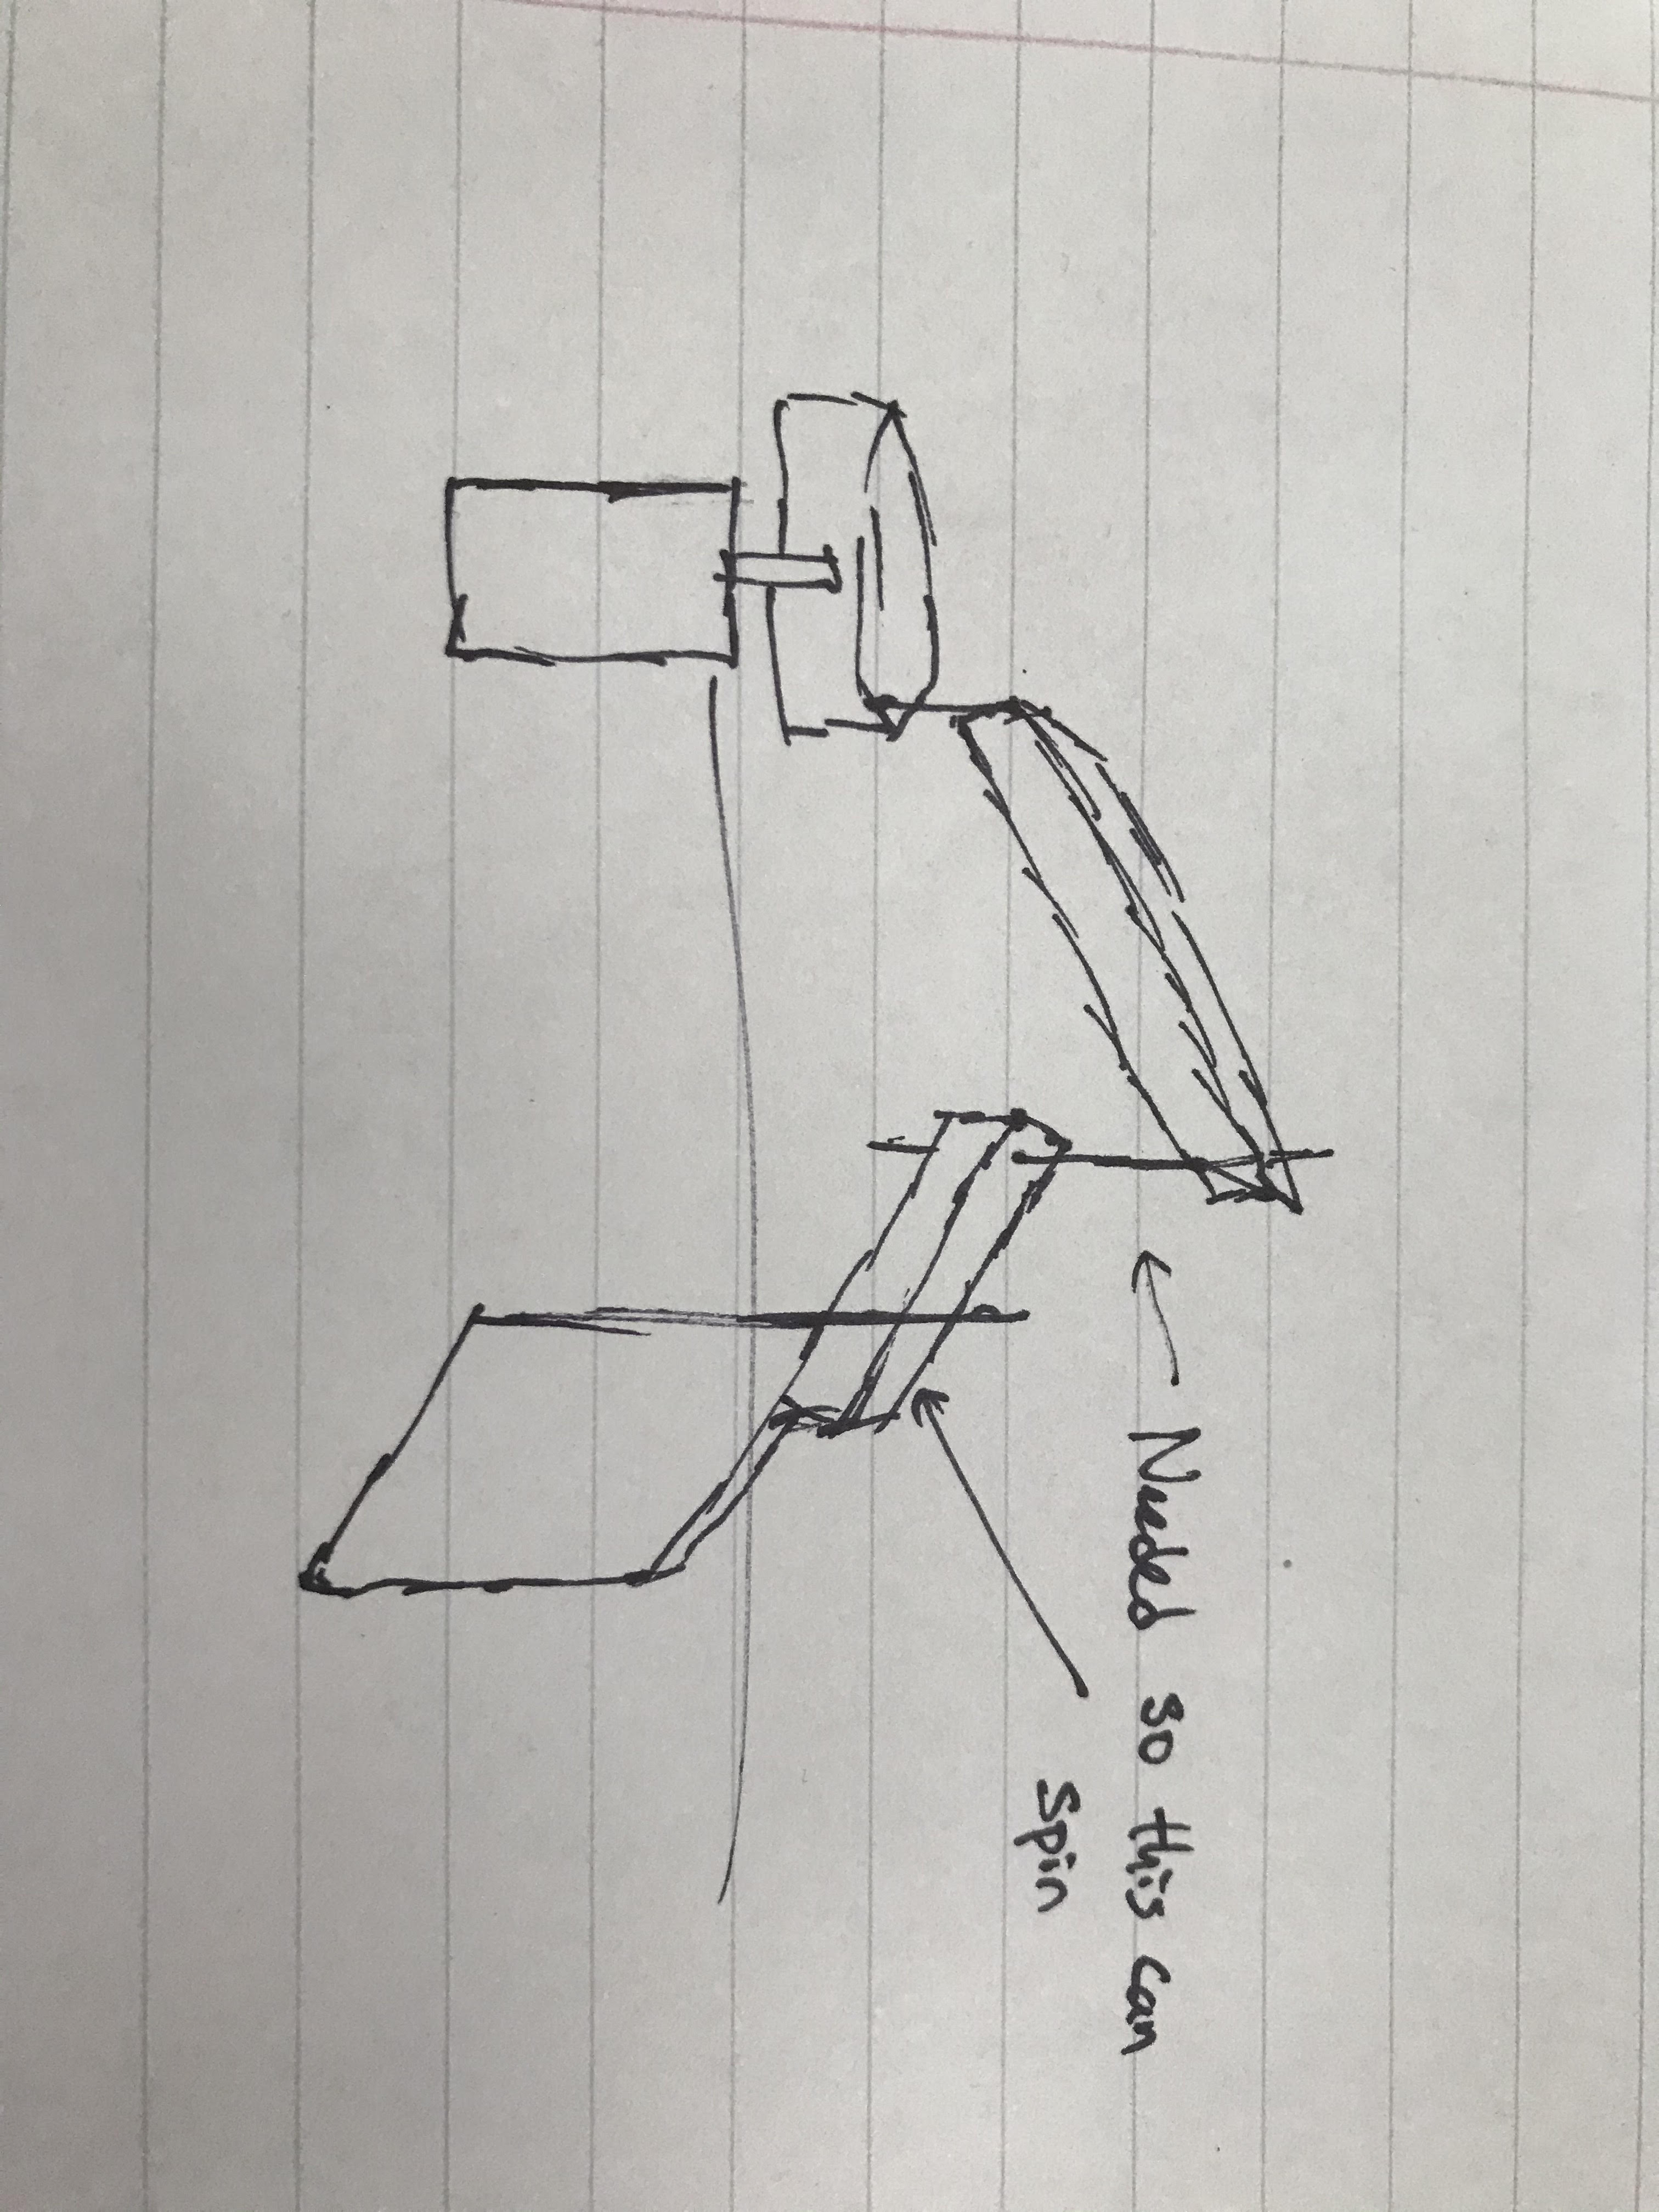 Needed so this can
spin